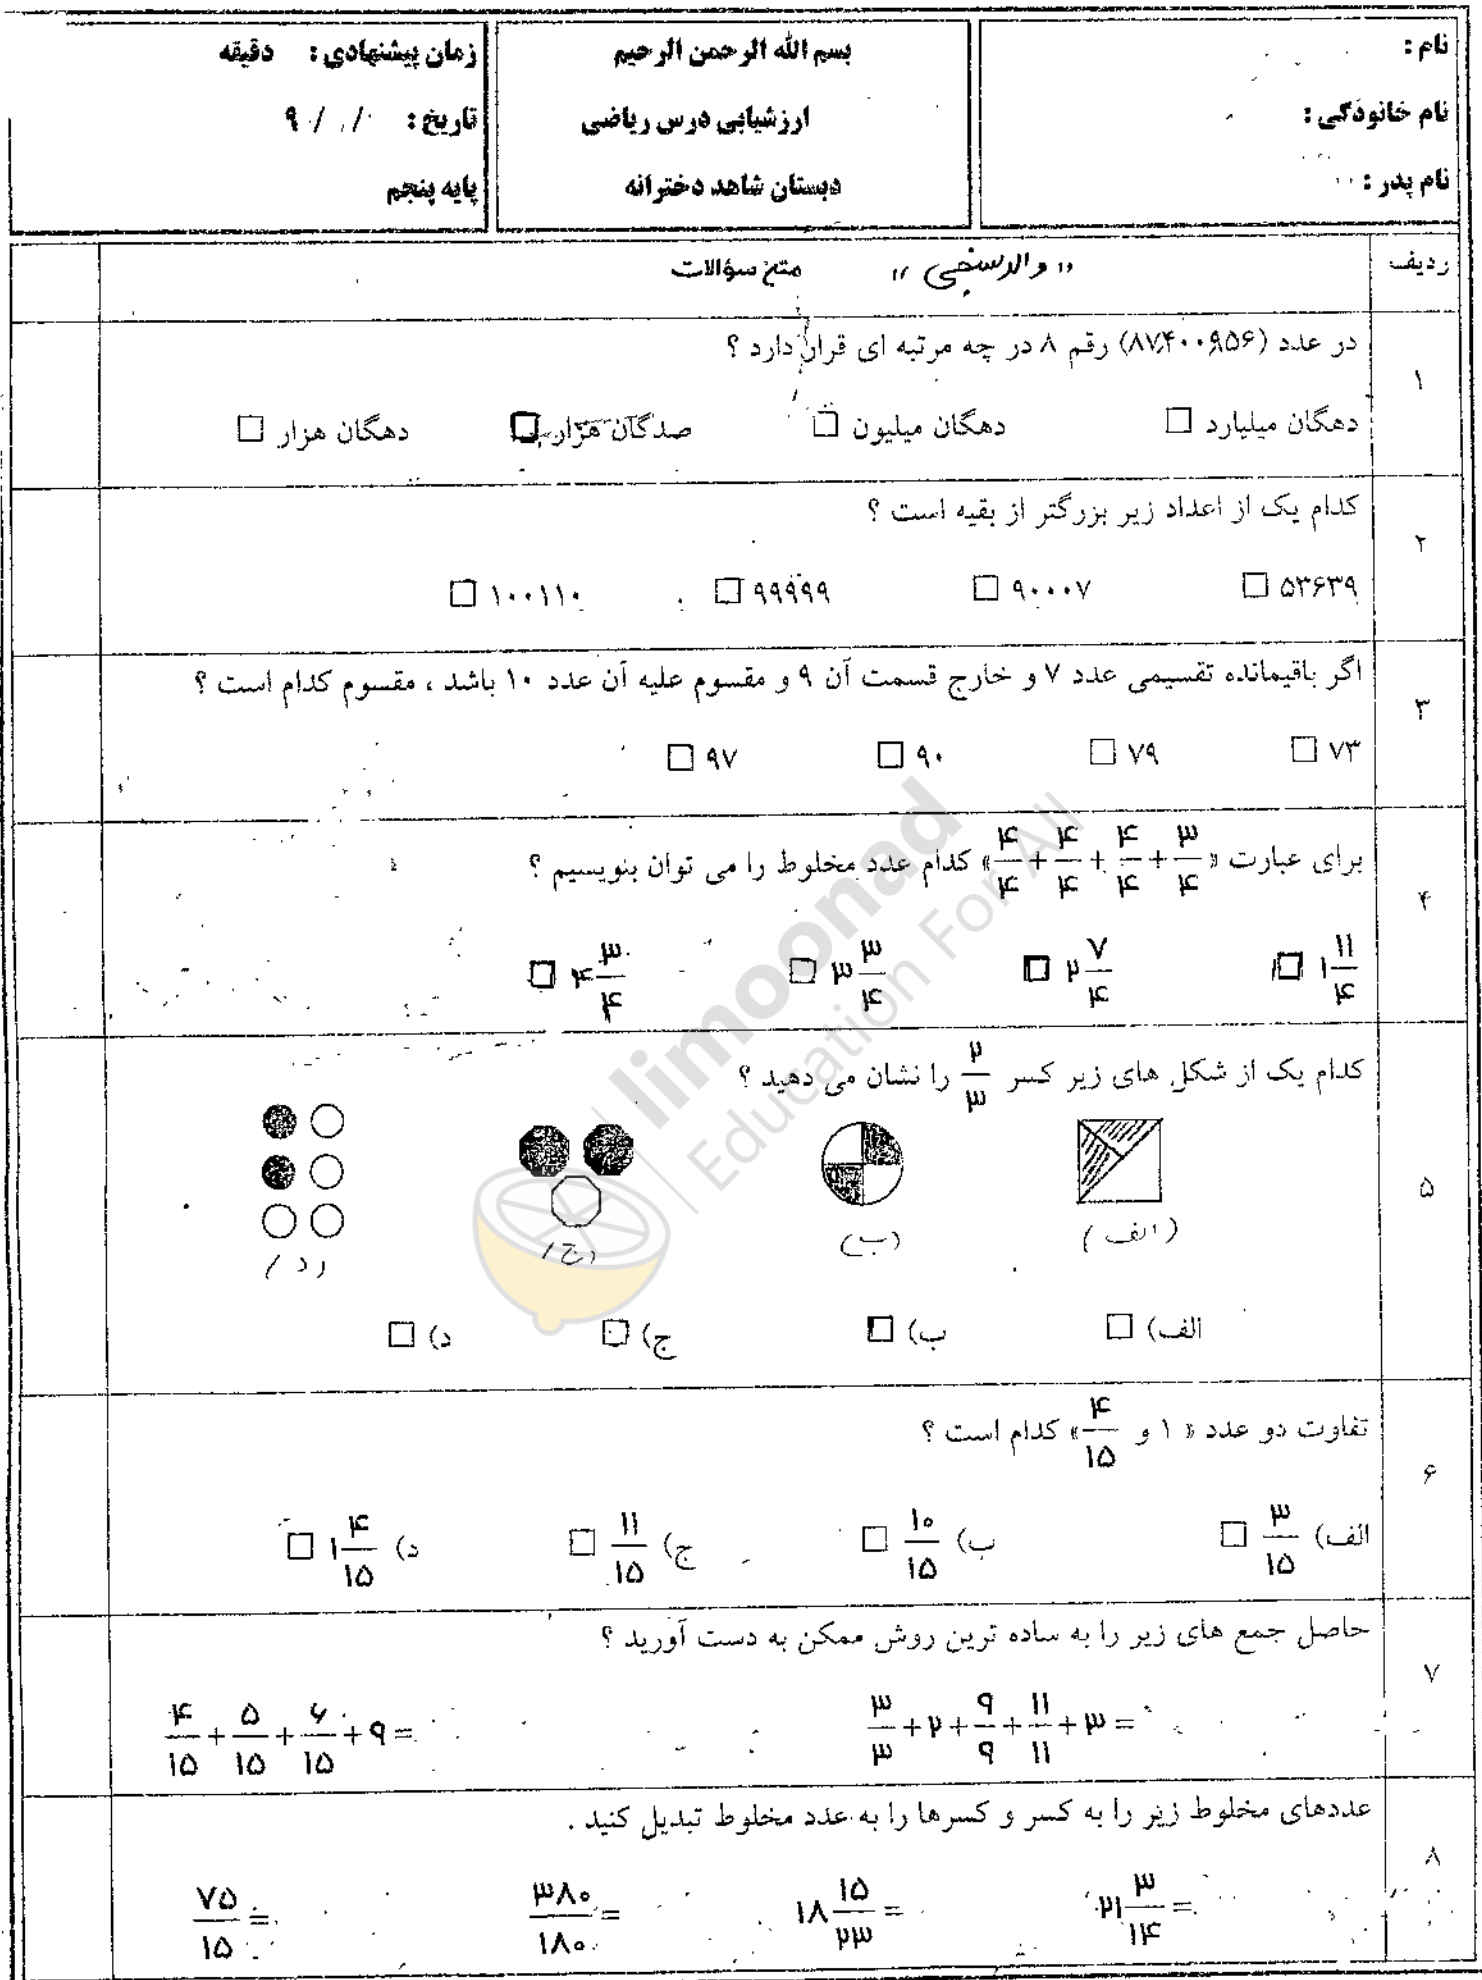 نام :
نام خانودگی :
نام پدر :
بسم الله الرحمن الرحیم
ارزشیابی درس ریاضی
دبستان شاهد دخترانه
زمان پیشنهادی : دقیقه
تاریخ : / / ۹۰
پایه پنجم
ردیف
متن سؤالات
۱
در عدد (۸۷۴۰۰۹۵۶) رقم ۸ در چه مرتبه ای قرار دارد ؟
دهگان میلیارد □ دهگان میلیون □ صدگان هزار □ دهگان هزار □
۲
کدام یک از اعداد زیر بزرگتر از بقیه است ؟
۵۳۶۳۹ □ ۹۰۰۰۷ □ ۹۹۹۹۹ □ ۱۰۰۱۱۰ □
۳
اگر باقیمانده تقسیمی عدد ۷ و خارج قسمت آن ۹ و مقسوم علیه آن عدد ۱۰ باشد ، مقسوم کدام است ؟
۷۳ □ ۷۹ □ ۹۰ □ ۹۷ □
۴
برای عبارت « ۴/۴ + ۴/۴ + ۴/۴ + ۳/۴ » کدام عدد مخلوط را می توان بنویسیم ؟
۱ ۱۱/۴ □ ۲ ۷/۴ □ ۳ ۳/۴ □ ۴ ۳/۴ □
۵
کدام یک از شکل های زیر کسر ۲/۳ را نشان می دهید ؟
(الف) (ب) (ج) (د)
الف) □ ب) □ ج) □ د) □
۶
تفاوت دو عدد « ۱ و ۴/۱۵ » کدام است ؟
الف) ۳/۱۵ □ ب) ۱۰/۱۵ □ ج) ۱۱/۱۵ □ د) ۱ ۴/۱۵ □
۷
حاصل جمع های زیر را به ساده ترین روش ممکن به دست آورید ؟
۳/۳ + ۲ + ۹/۹ + ۱۱/۱۱ + ۳ =
۴/۱۵ + ۵/۱۵ + ۶/۱۵ + ۹ =
۸
عددهای مخلوط زیر را به کسر و کسرها را به عدد مخلوط تبدیل کنید .
۲۱ ۳/۱۴ = ۱۸ ۱۵/۲۳ = ۳۸۰/۱۸۰ = ۷۵/۱۵ =
limoonad
Education For All